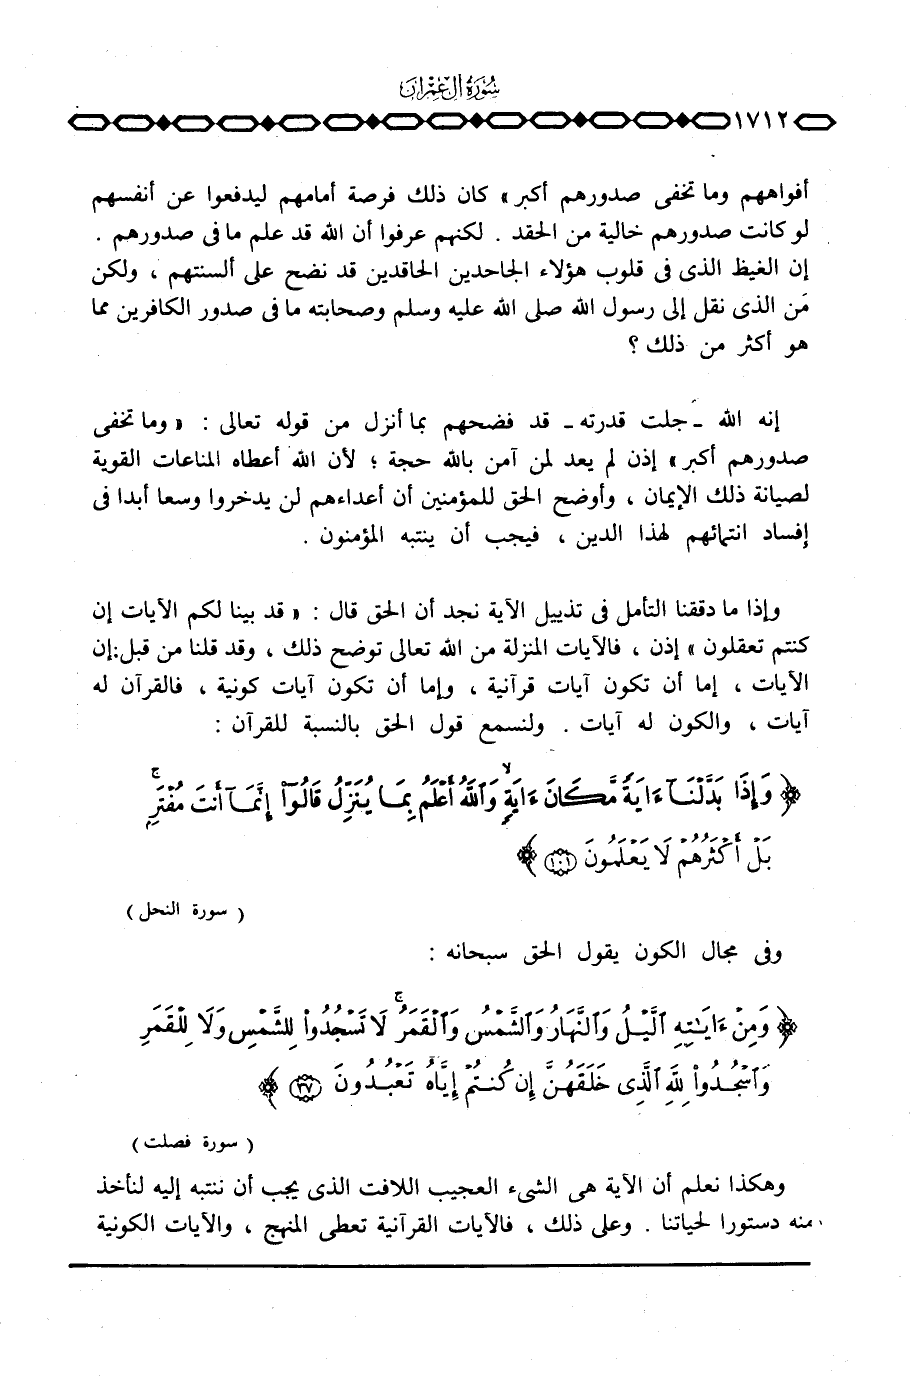 سورة آل عمران
١٧١٢
أفواههم وما تخفى صدورهم أكبر » كان ذلك فرصة أمامهم ليدفعوا عن أنفسهم
لو كانت صدورهم خالية من الحقد . لكنهم عرفوا أن الله قد علم ما فى صدورهم .
إن الغيظ الذى فى قلوب هؤلاء الجاحدين الحاقدين قد نضح على ألسنتهم ، ولكن
مَن الذى نقل إلى رسول الله صلى الله عليه وسلم وصحابته ما فى صدور الكافرين مما
هو أكثر من ذلك ؟
إنه الله ـ جلت قدرته ـ قد فضحهم بما أنزل من قوله تعالى : « وما تخفى
صدورهم أكبر » إذن لم يعد لمن آمن بالله حجة ؛ لأن الله أعطاه المناعات القوية
لصيانة ذلك الإيمان ، وأوضح الحق للمؤمنين أن أعداءهم لن يدخروا وسعا أبدا فى
إفساد انتمائهم لهذا الدين ، فيجب أن ينتبه المؤمنون .
وإذا ما دققنا التأمل فى تذييل الآية نجد أن الحق قال : « قد بينا لكم الآيات إن
كنتم تعقلون » إذن ، فالآيات المنزلة من الله تعالى توضح ذلك ، وقد قلنا من قبل:إن
الآيات ، إما أن تكون آيات قرآنية ، وإما أن تكون آيات كونية ، فالقرآن له
آيات ، والكون له آيات . ولنسمع قول الحق بالنسبة للقرآن :
﴿ وَإِذَا بَدَّلْنَآ ءَايَةً مَّكَانَ ءَايَةٍ ۙ وَٱللَّهُ أَعْلَمُ بِمَا يُنَزِّلُ قَالُوٓا۟ إِنَّمَآ أَنتَ مُفْتَرٍۭ ۚ
بَلْ أَكْثَرُهُمْ لَا يَعْلَمُونَ ١٠١ ﴾
( سورة النحل )
وفى مجال الكون يقول الحق سبحانه :
﴿ وَمِنْ ءَايَـٰتِهِ ٱلَّيْلُ وَٱلنَّهَارُ وَٱلشَّمْسُ وَٱلْقَمَرُ ۚ لَا تَسْجُدُوا۟ لِلشَّمْسِ وَلَا لِلْقَمَرِ
وَٱسْجُدُوا۟ لِلَّهِ ٱلَّذِى خَلَقَهُنَّ إِن كُنتُمْ إِيَّاهُ تَعْبُدُونَ ٣٧ ﴾
( سورة فصلت )
وهكذا نعلم أن الآية هى الشىء العجيب اللافت الذى يجب أن ننتبه إليه لنأخذ
منه دستورا لحياتنا . وعلى ذلك ، فالآيات القرآنية تعطى المنهج ، والآيات الكونية